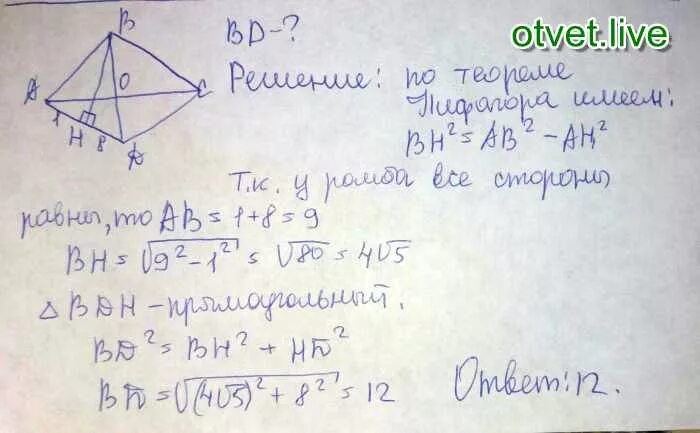 otvet.live
BD-?
Решение: по теореме
Пифагора имеем:
BH² = AB² - AH²
Т.к. у ромба все стороны
равны, то AB = 1+8 = 9
BH = √9² - 1² = √80 = 4√5
△ BDH - прямоугольный.
BD² = BH² + HD²
BD = √(4√5)² + 8² = 12
Ответ: 12.
B
A
O
C
1
H
8
D